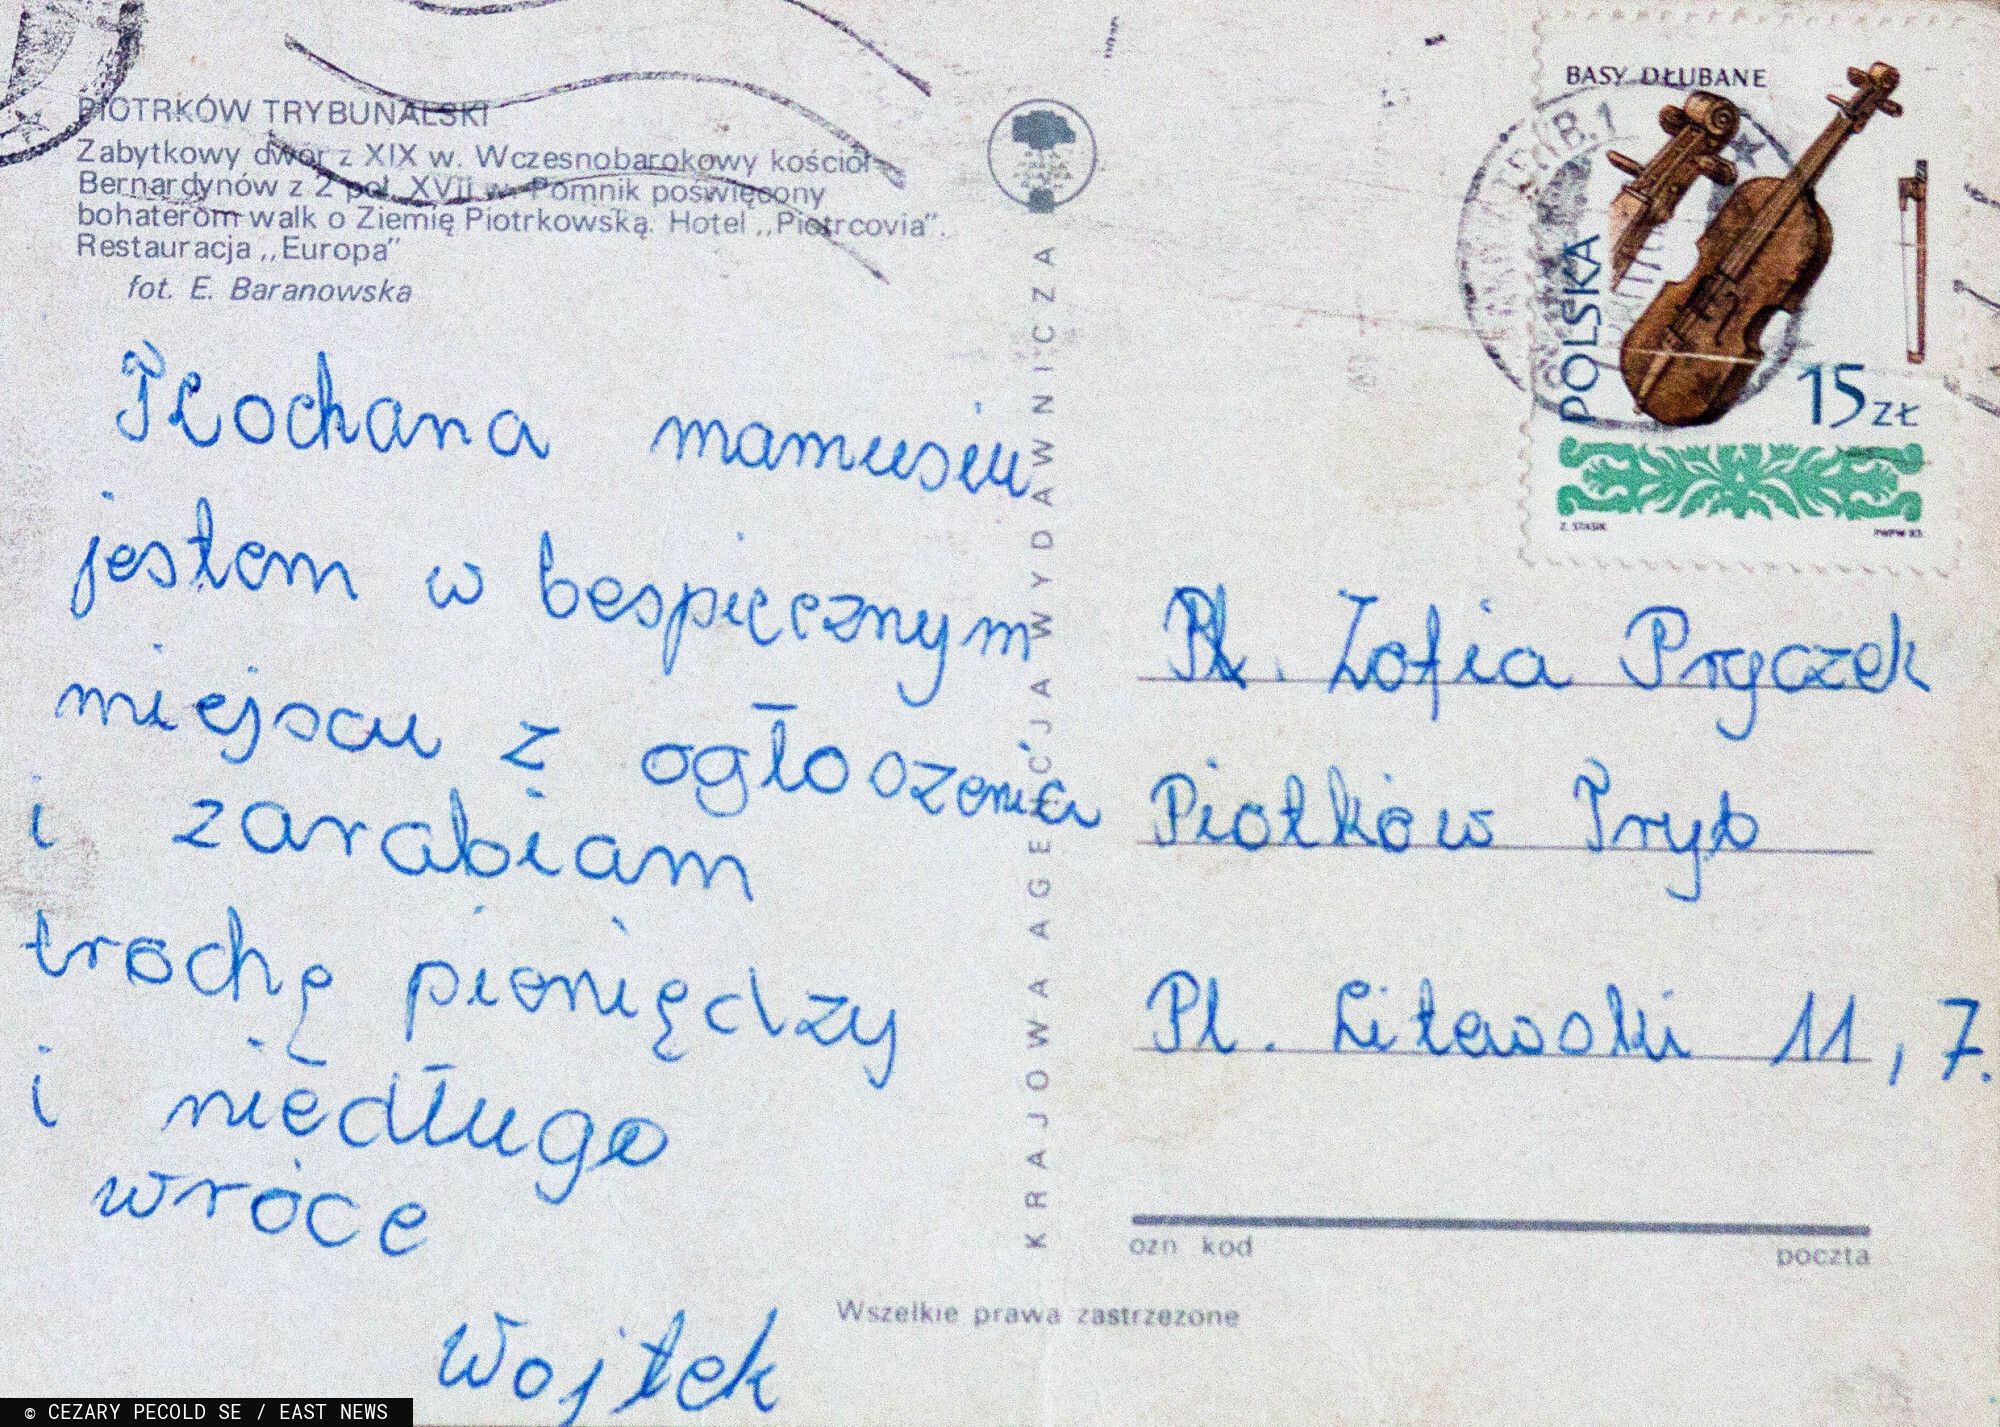 PIOTRKÓW TRYBUNALSKI
Zabytkowy dwór z XIX w. Wczesnobarokowy kościół
Bernardynów z 2 poł. XVII w. Pomnik poświęcony
bohaterom walk o Ziemię Piotrkowską. Hotel „Piotrcovia”.
Restauracja „Europa”
fot. E. Baranowska
Kochana mamusiu
jestem w bespięcznym
miejscu z ogłoszenia
i zarabiam
trochę pieniędzy
i niedługo
wróce
Wojtek
KRAJOWA AGENCJA WYDAWNICZA
BASY DŁUBANE
POLSKA
15 ZŁ
Z. STASIK
PWPW 83
Pl. Zofia Pryczek
Piotków Tryb
Pl. Litewski 11, 7.
ozn kod
poczta
Wszelkie prawa zastrzeżone
© CEZARY PECOLD SE / EAST NEWS